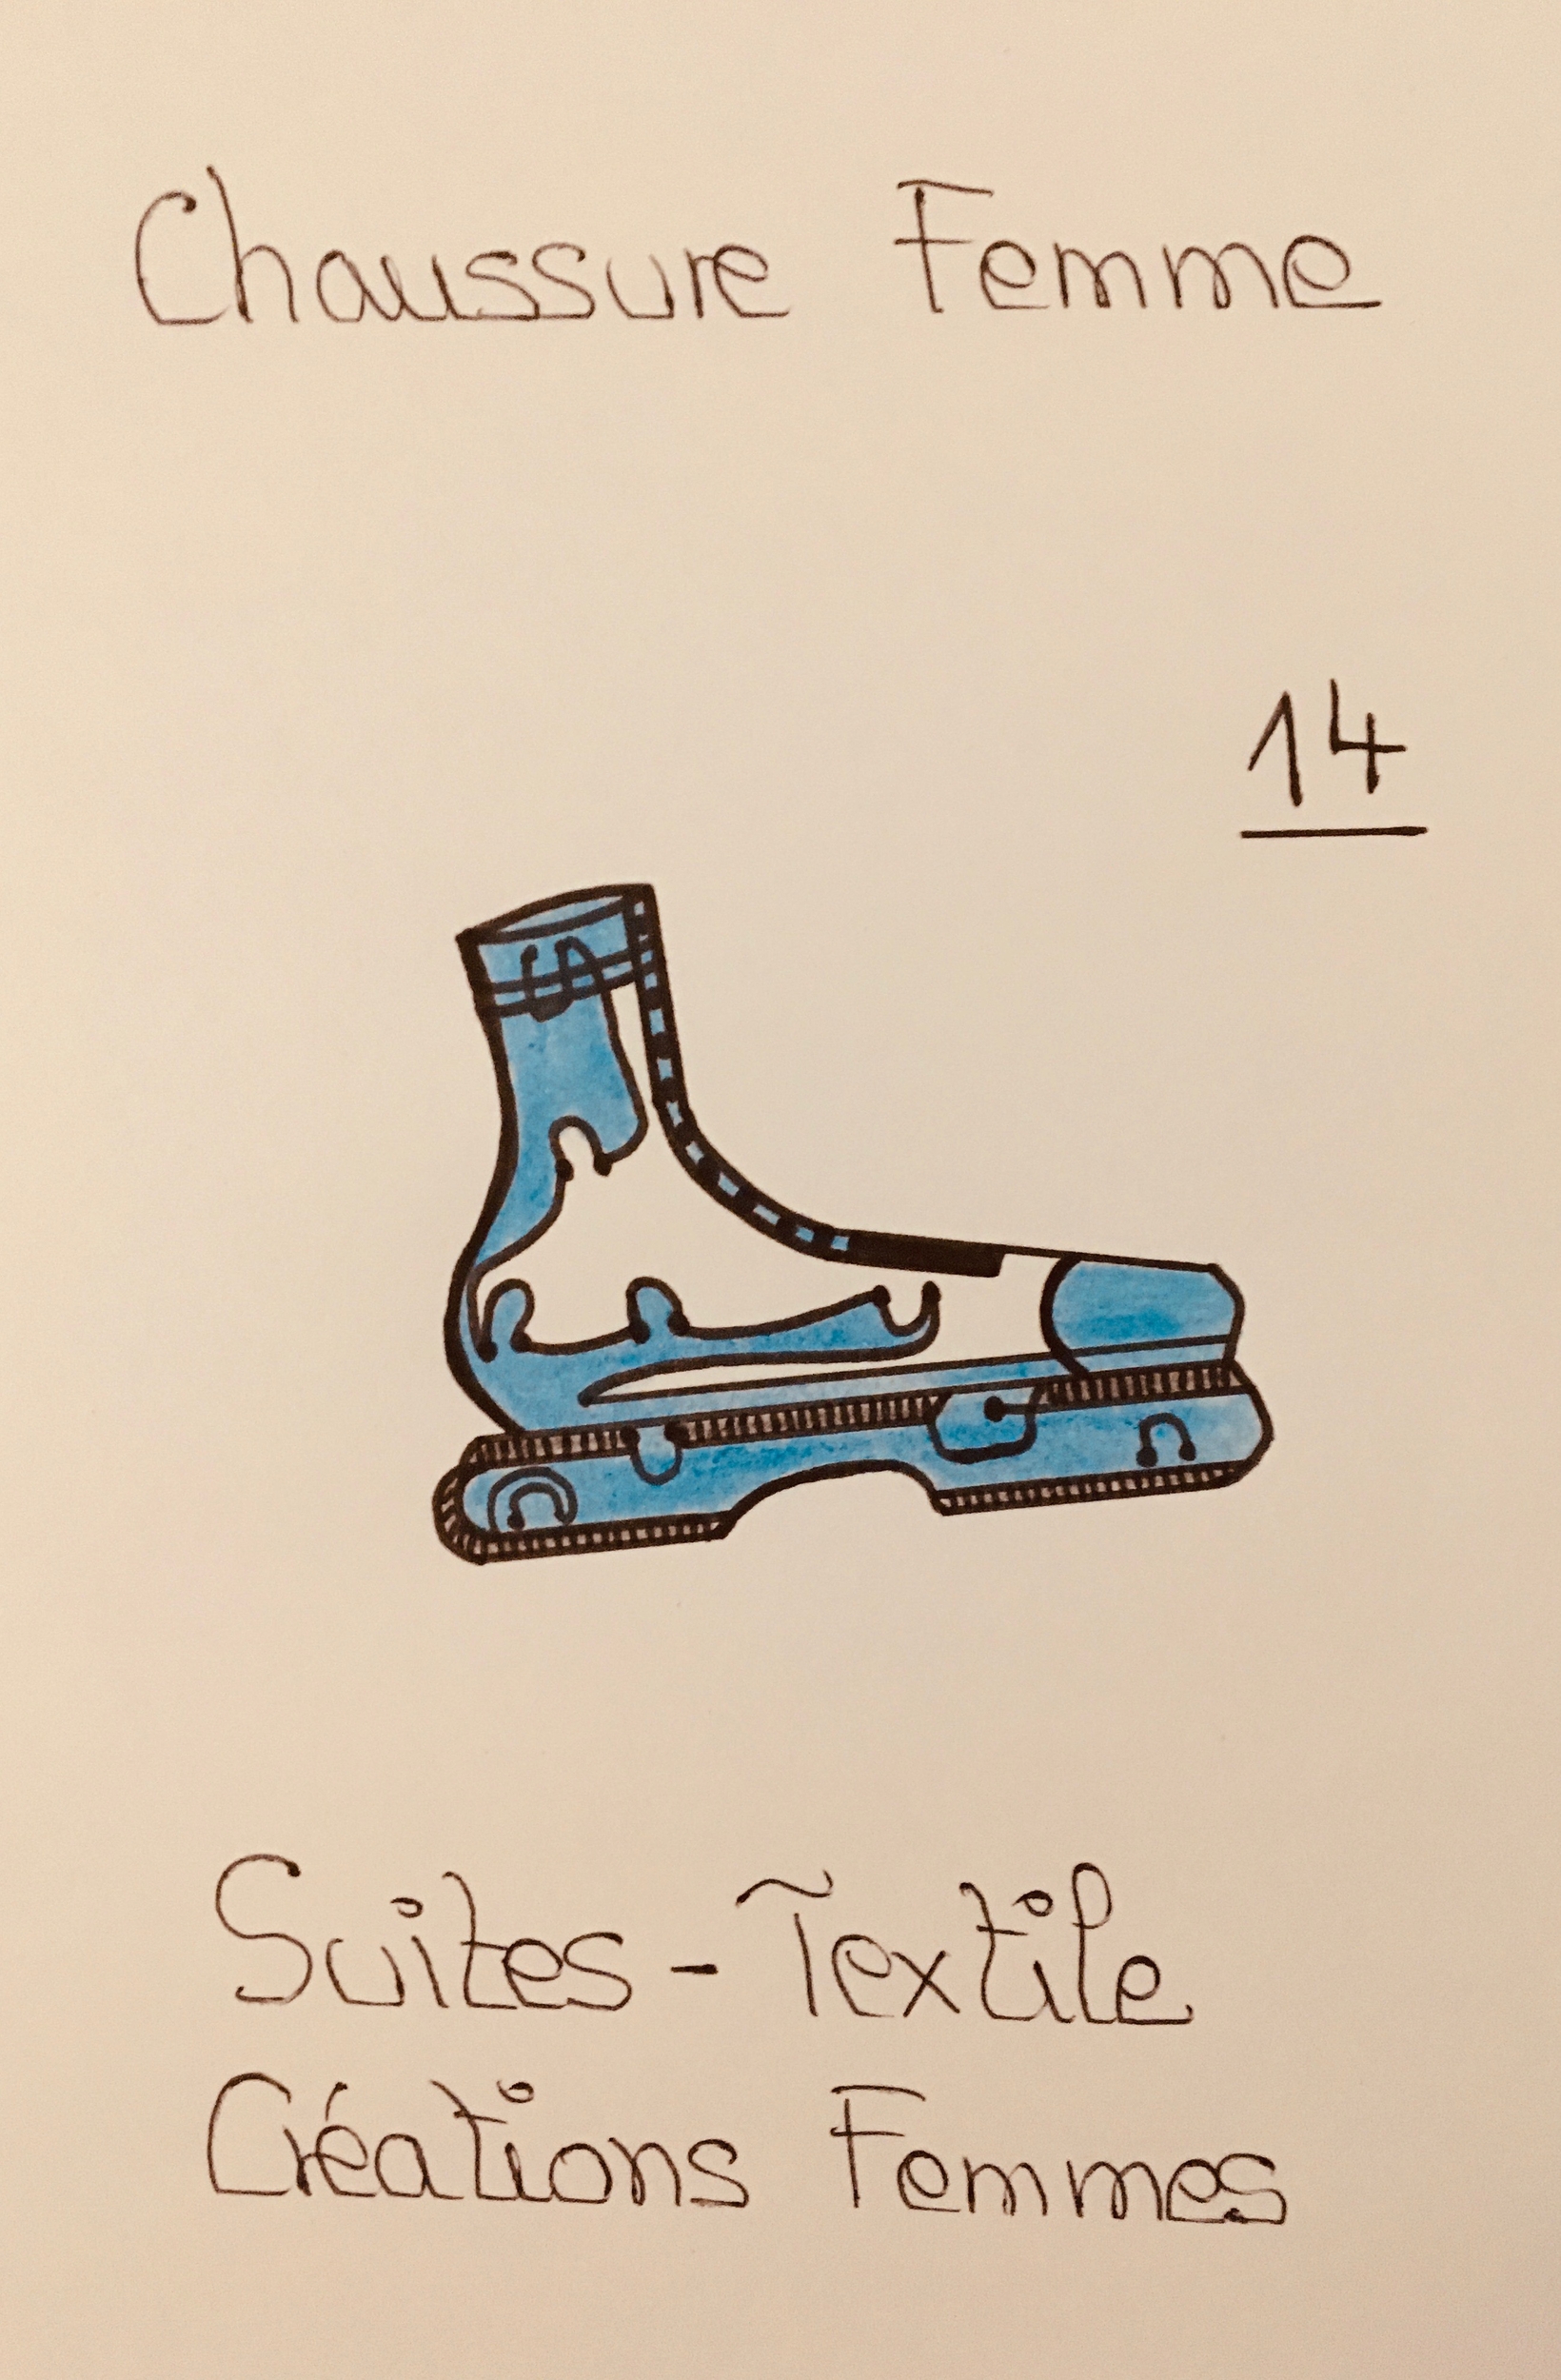 Chaussure Femme
14
Suites-Textile
Créations Femmes